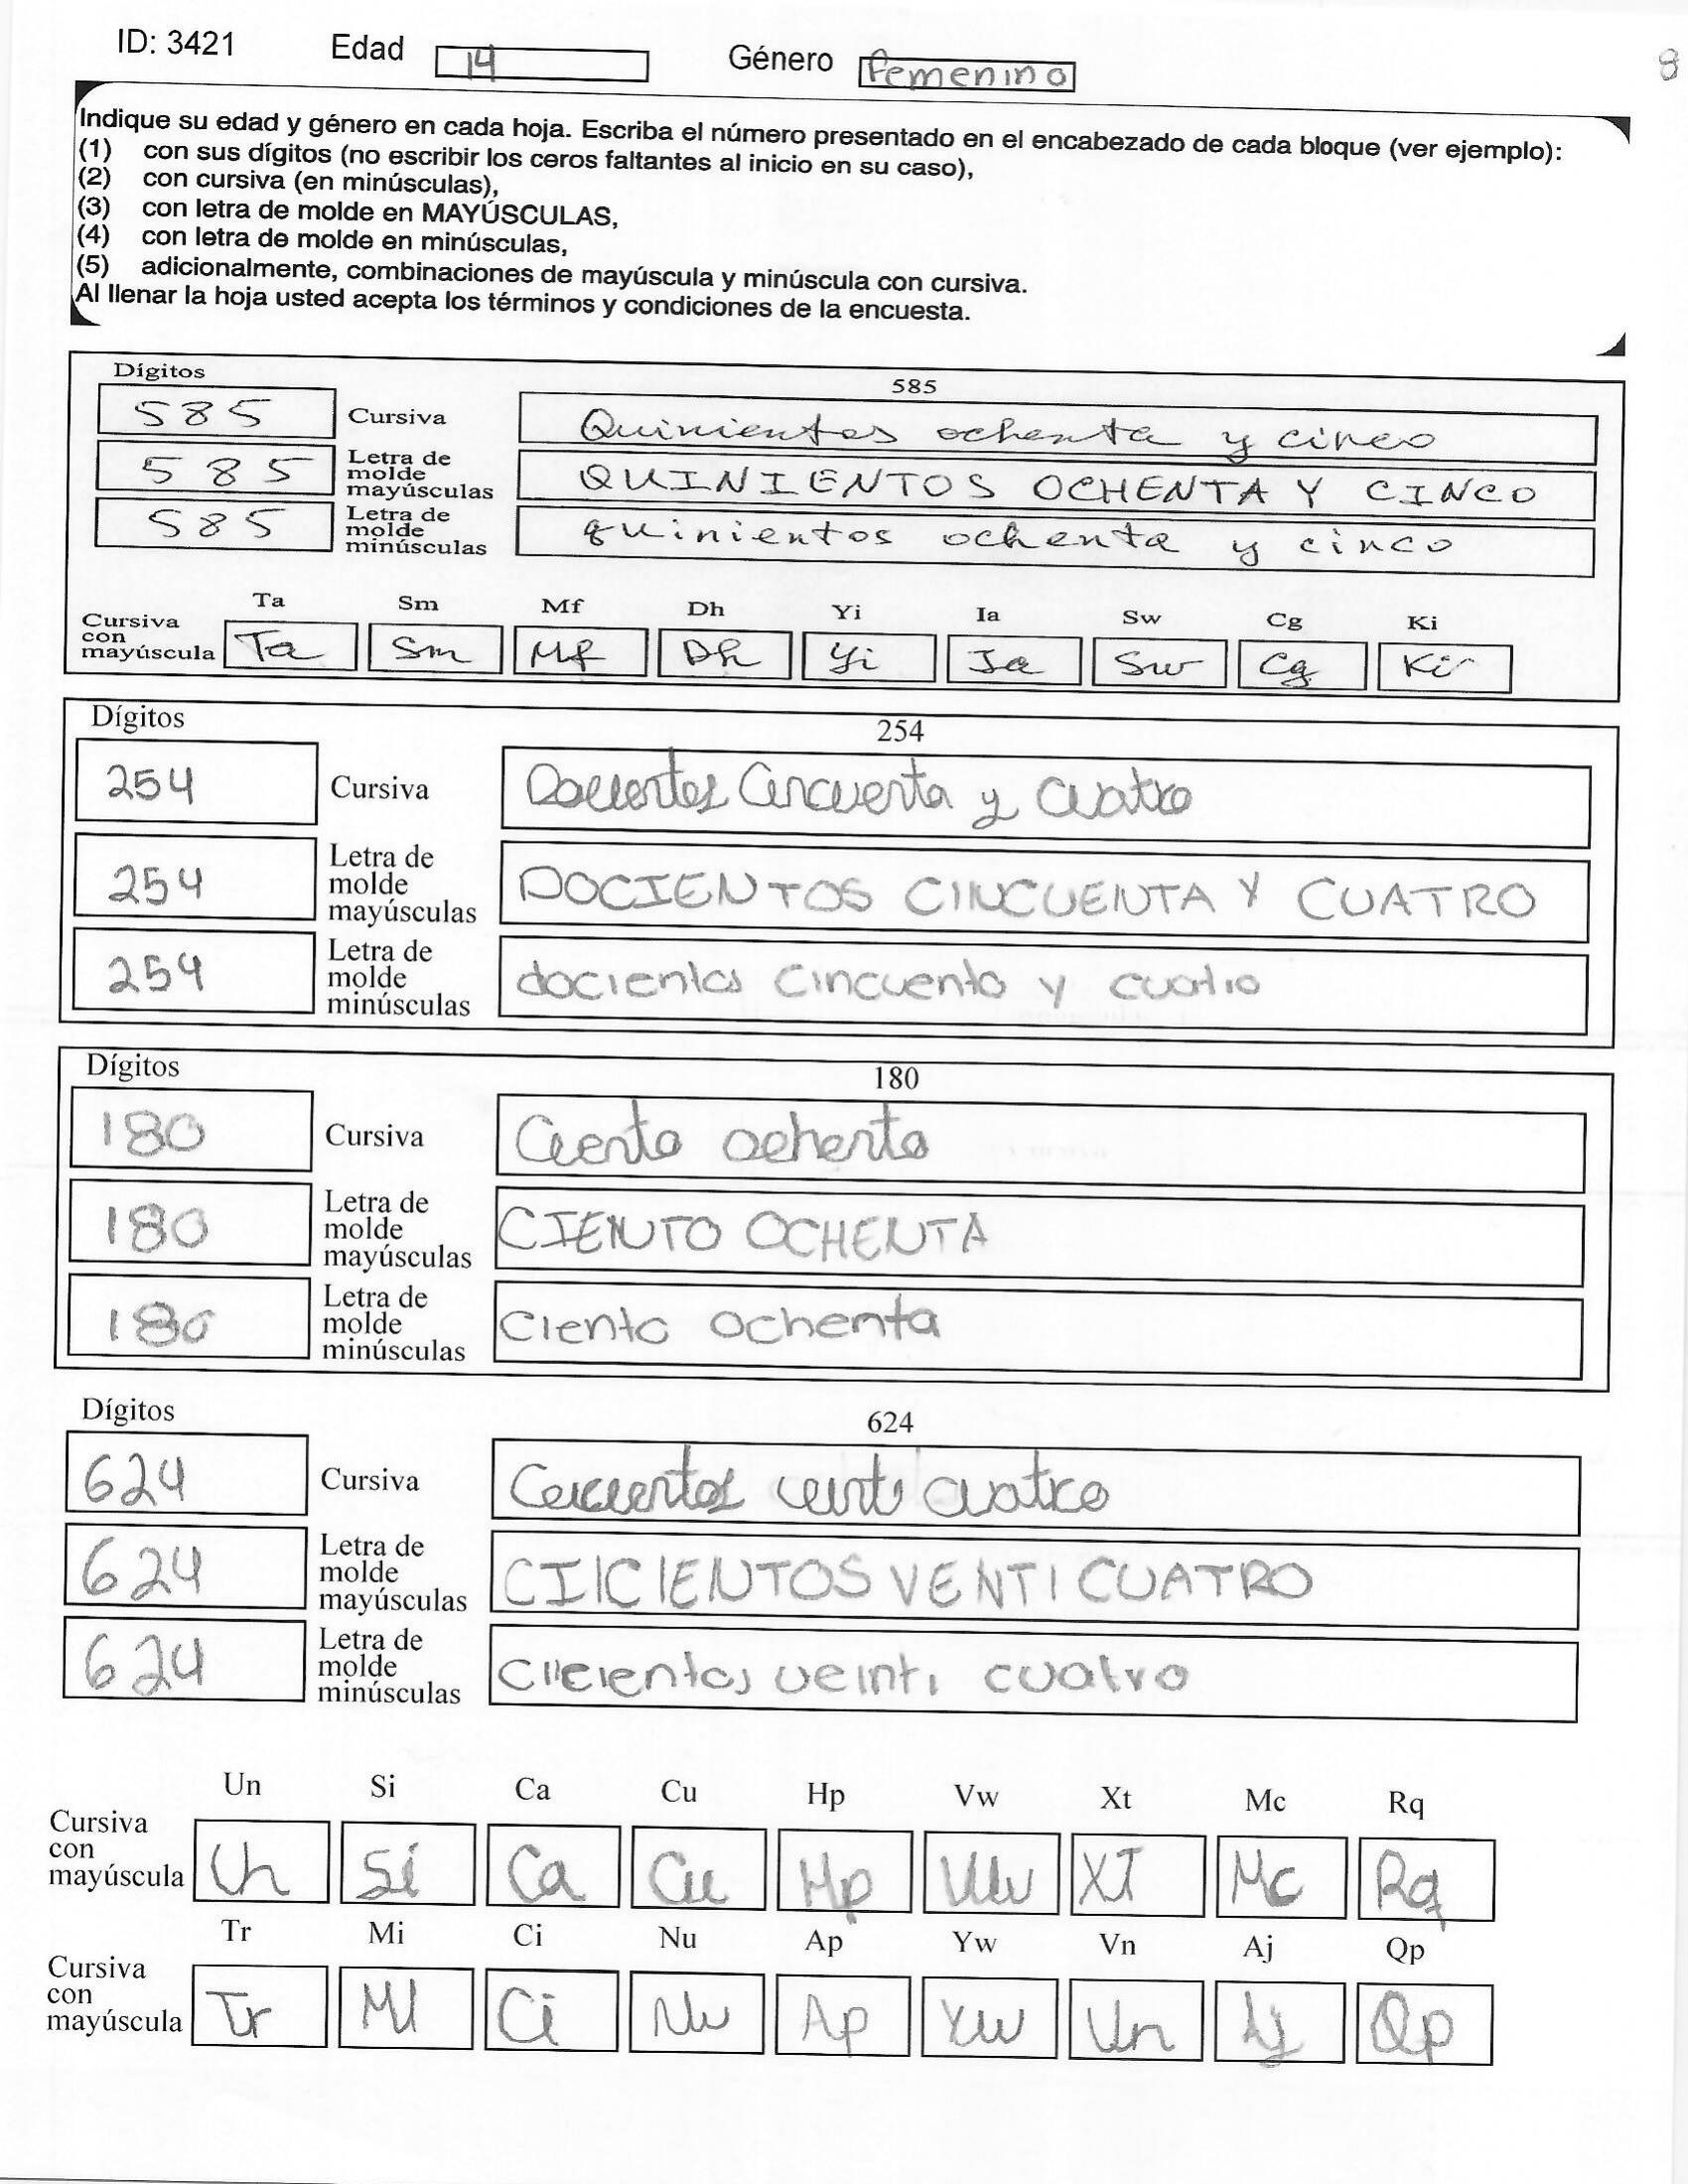 ID: 3421 Edad 14 Género femenino 8
Indique su edad y género en cada hoja. Escriba el número presentado en el encabezado de cada bloque (ver ejemplo):
(1) con sus dígitos (no escribir los ceros faltantes al inicio en su caso),
(2) con cursiva (en minúsculas),
(3) con letra de molde en MAYÚSCULAS,
(4) con letra de molde en minúsculas,
(5) adicionalmente, combinaciones de mayúscula y minúscula con cursiva.
Al llenar la hoja usted acepta los términos y condiciones de la encuesta.
Dígitos 585
585 Cursiva Quinientos ochenta y cinco
585 Letra de molde mayúsculas QUINIENTOS OCHENTA Y CINCO
585 Letra de molde minúsculas quinientos ochenta y cinco
Ta Sm Mf Dh Yi Ia Sw Cg Ki
Cursiva con mayúscula Ta Sm Mf Dh Yi Ia Sw Cg Ki
Dígitos 254
254 Cursiva Docientos Cincuenta y cuatro
254 Letra de molde mayúsculas DOCIENTOS CINCUENTA Y CUATRO
254 Letra de molde minúsculas docientos cincuenta y cuatro
Dígitos 180
180 Cursiva Ciento ochenta
180 Letra de molde mayúsculas CIENTO OCHENTA
180 Letra de molde minúsculas ciento ochenta
Dígitos 624
624 Cursiva veinti cuatro
624 Letra de molde mayúsculas CIICIENTOS VENTI CUATRO
624 Letra de molde minúsculas veinti cuatro
Un Si Ca Cu Hp Vw Xt Mc Rq
Cursiva con mayúscula Un Si Ca Cu Hp Vw XT Mc Rq
Tr Mi Ci Nu Ap Yw Vn Aj Qp
Cursiva con mayúscula Tr Mi Ci Nu Ap Yw Vn Aj Qp